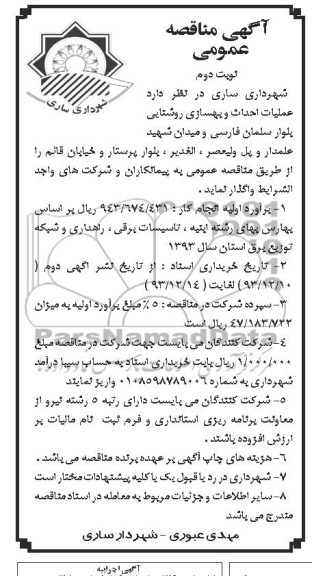 آگهی مناقصه
عمومی
نوبت دوم
شهرداری ساری
شهرداری ساری در نظر دارد
عملیات احداث و بهسازی روشنایی
بلوار سلمان فارسی و میدان شهید
علمدار و پل ولیعصر ، الغدیر ، بلوار پرستار و خیابان قائم را
از طریق مناقصه عمومی به پیمانکاران و شرکت های واجد
الشرایط واگذار نماید .
۱- برآورد اولیه انجام کار : ۹۴۳/۶۷۴/۴۳۱ ریال بر اساس
فهارس بهای رشته ابنیه ، تاسیسات برقی ، راهداری و شبکه
توزیع برق استان سال ۱۳۹۳
۲- تاریخ خریداری اسناد : از تاریخ نشر اگهی دوم (
۹۳/۱۲/۱۰ ) لغایت ( ۹۳/۱۲/۱۴ )
۳- سپرده شرکت در مناقصه : ۵٪ مبلغ برآورد اولیه به میزان
۴۷/۱۸۳/۷۲۲ ریال است
۴- شرکت کنندگان می بایست جهت شرکت در مناقصه مبلغ
۱/۰۰۰/۰۰۰ ریال بابت خریداری اسناد به حساب سیبا درآمد
شهرداری به شماره ۰۱۰۸۵۹۸۷۸۹۰۰۶ واریز نمایند
۵- شرکت کنندگان می بایست دارای رتبه ۵ رشته نیرو از
معاونت برنامه ریزی استانداری و فرم ثبت نام مالیات بر
ارزش افزوده باشند .
۶- هزینه های چاپ آگهی بر عهده برنده مناقصه می باشد .
۷- شهرداری در رد یا قبول یک یا کلیه پیشنهادات مختار است
۸- سایر اطلاعات و جزئیات مربوط به معامله در اسناد مناقصه
مندرج می باشد
مهدی عبوری - شهردار ساری
ParsNamadData
آگهی اجرائیه